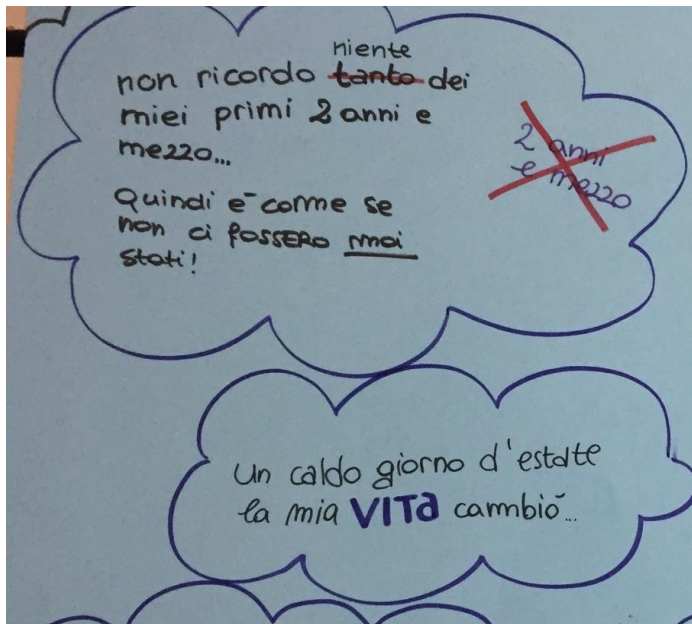 niente
non ricordo tanto dei
miei primi 2 anni e
mezzo...
2 anni
e mezzo
Quindi è come se
non ci fossero mai
stati!
Un caldo giorno d'estate
la mia VITA cambiò...